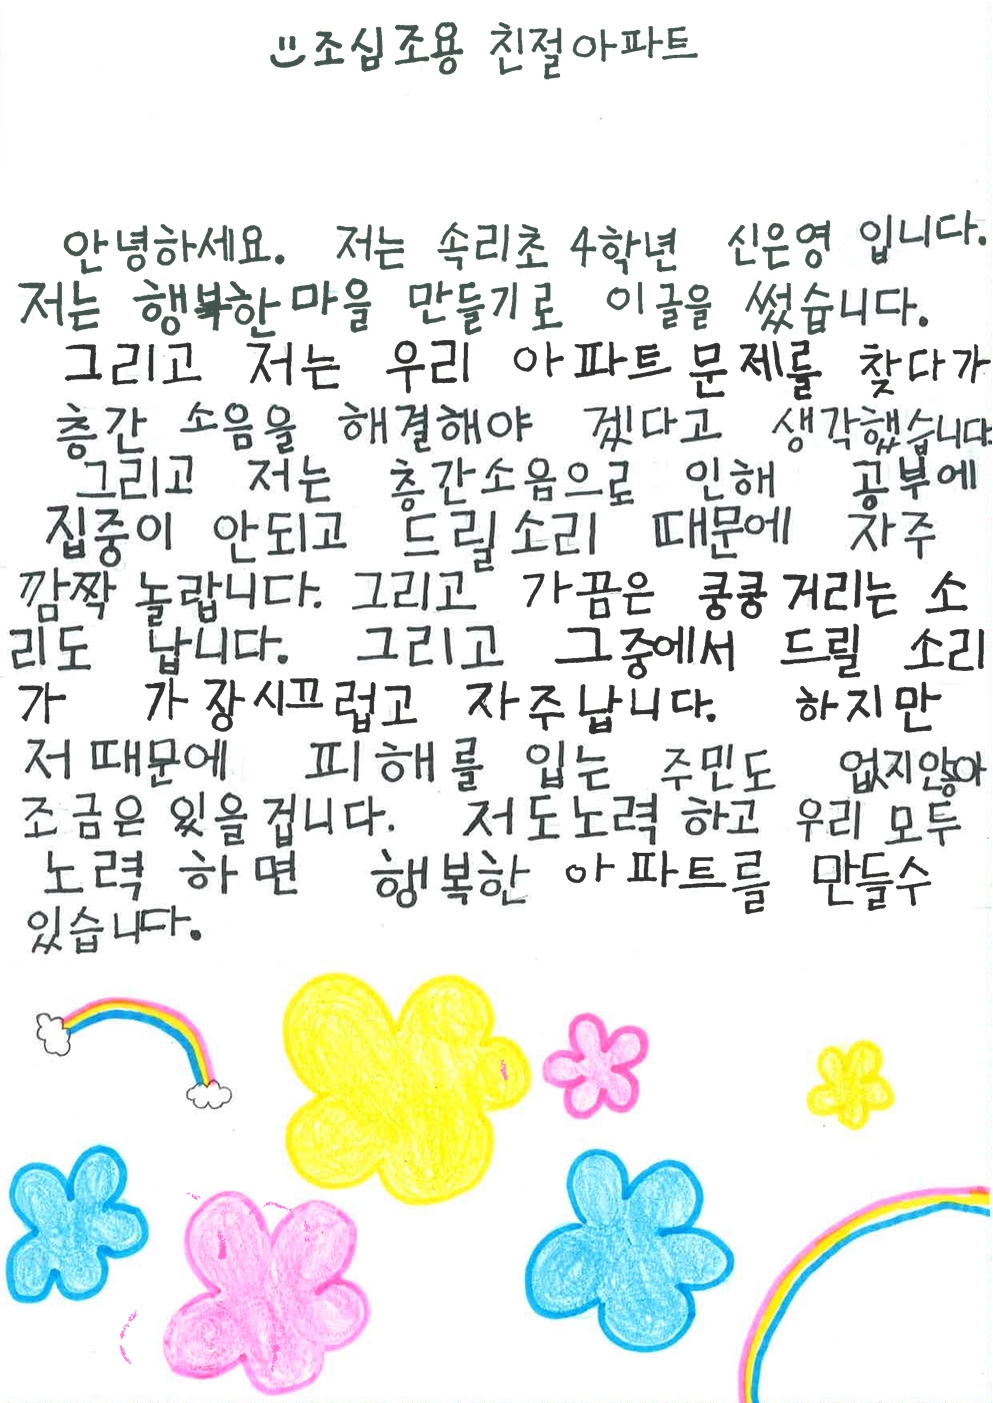 조심조용 친절아파트
안녕하세요. 저는 속리초 4학년 신은영 입니다.
저는 행복한 마을 만들기로 이글을 썼습니다.
그리고 저는 우리 아파트 문제를 찾다가
층간 소음을 해결해야 겠다고 생각했습니다
그리고 저는 층간소음으로 인해 공부에
집중이 안되고 드릴소리 때문에 자주
깜짝 놀랍니다. 그리고 가끔은 쿵쿵거리는 소
리도 납니다. 그리고 그중에서 드릴 소리
가 가장시끄럽고 자주납니다. 하지만
저때문에 피해를 입는 주민도 없지않아
조금은 있을겁니다. 저도노력하고 우리 모두
노력하면 행복한 아파트를 만들수
있습니다.